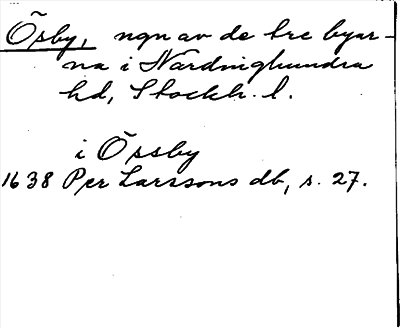 Õsby, ngn av de tre byar-
na i Närdinghundra
hd, Stockh. l.
i Õssby
1638 Per Larssons db, s. 27.